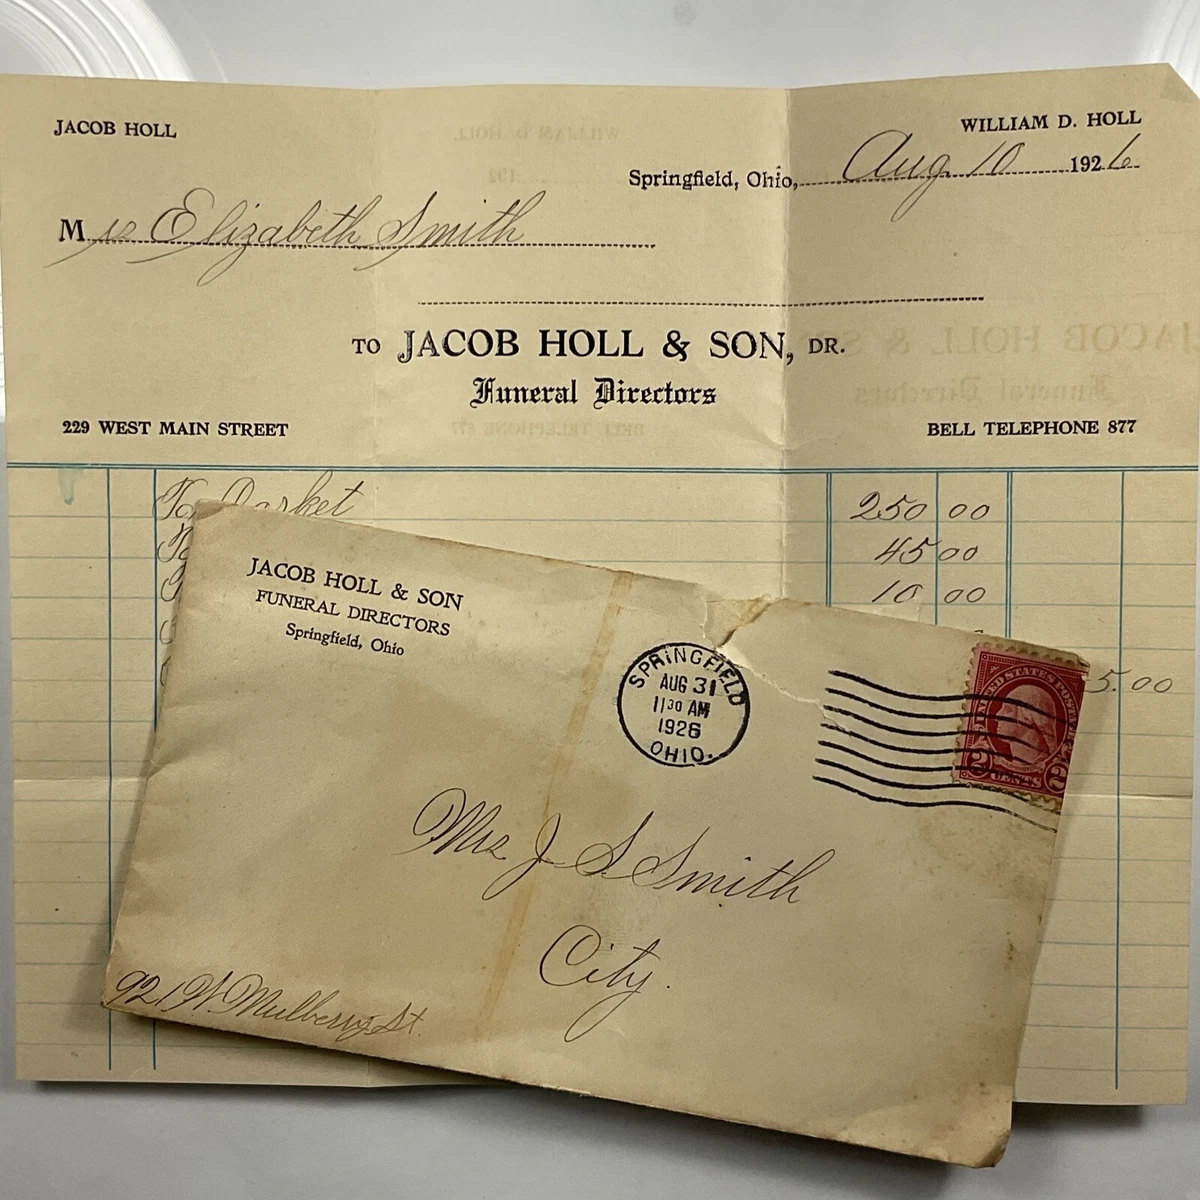 JACOB HOLL
WILLIAM D. HOLL
Springfield, Ohio, Aug. 10 1926
Mrs Elizabeth Smith
TO JACOB HOLL & SON, DR.
Funeral Directors
229 WEST MAIN STREET
BELL TELEPHONE 877
To Casket 250 00
45 00
10 00
5.00
JACOB HOLL & SON
FUNERAL DIRECTORS
Springfield, Ohio
SPRINGFIELD
AUG 31
11 30 AM
1926
OHIO.
UNITED STATES POSTAGE
2 CENTS 2
Mrs J S Smith
City.
921 W. Mulberry St.